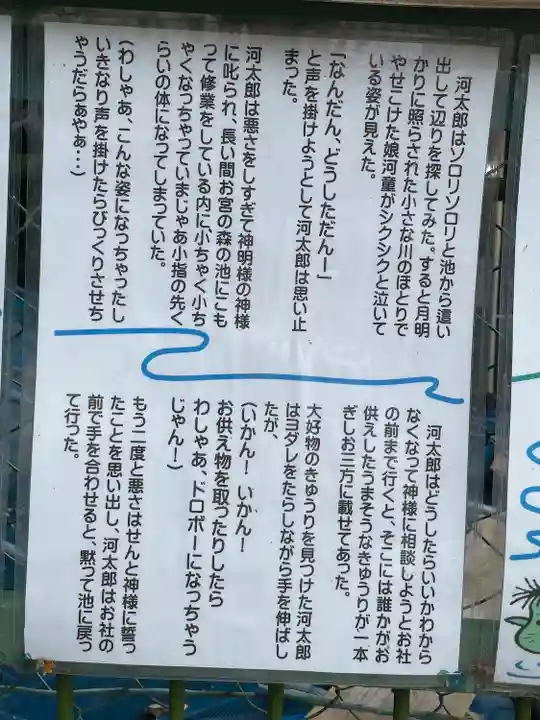 河太郎はソロリソロリと池から這い
出して辺りを探してみた。すると月明
かりに照らされた小さな川のほとりで
やせこけた娘河童がシクシクと泣いて
いる姿が見えた。
「なんだん、どうしただんー」
と声を掛けようとして河太郎は思い止
まった。
河太郎は悪さをしすぎて神明様の神様
に叱られ、長い間お宮の森の池にこも
って修業をしている内に小ちゃく小ち
ゃくなっちゃっていまじゃあ小指の先く
らいの体になってしまっていた。
(わしゃあ、こんな姿になっちゃったし
いきなり声を掛けたらびっくりさせち
ゃうだらぁやぁ・・・)
河太郎はどうしたらいいかわから
なくなって神様に相談しようとお社
の前まで行くと、そこには誰かがお
供えしたうまそうなきゅうりが一本
ぎしお三方に載せてあった。
大好物のきゅうりを見つけた河太郎
はヨダレをたらしながら手を伸ばし
たが、
(いかん!いかん!
お供え物を取ったりしたら
わしゃあ、ドロボーになっちゃう
じゃん!)
もう二度と悪さはせんと神様に誓っ
たことを思い出し、河太郎はお社の
前で手を合わせると、黙って池に戻っ
て行った。